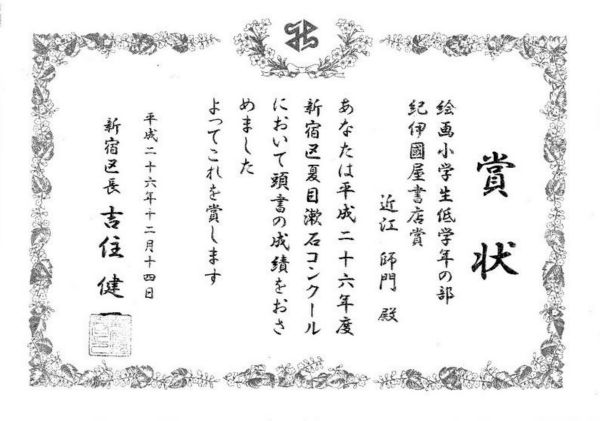 賞状
絵画小学生低学年の部
紀伊國屋書店賞
近江 師門 殿
あなたは平成二十六年度
新宿区夏目漱石コンクール
において頭書の成績をおさ
めました
よってこれを賞します
平成二十六年十二月十四日
新宿区長 吉住 健一